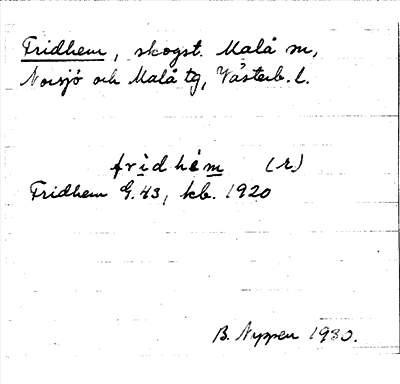 Fridhem, skogst. Malå sn,
Norsjö och Malå tg, Västerb. l.
fridhèm (r)
Fridhem G. 43, kb. 1920
B. Nyppen 1930.